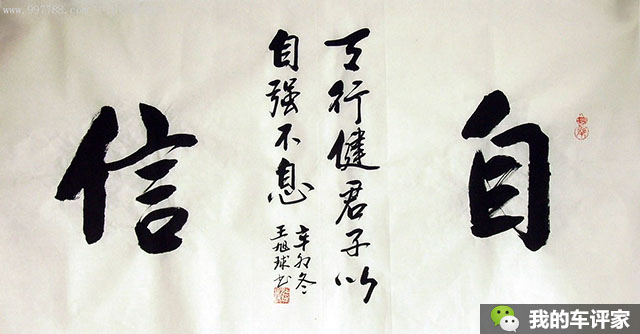 www.997788.com
自
天行健君子以
自强不息
辛卯冬
王旭球书
信
我的车评家